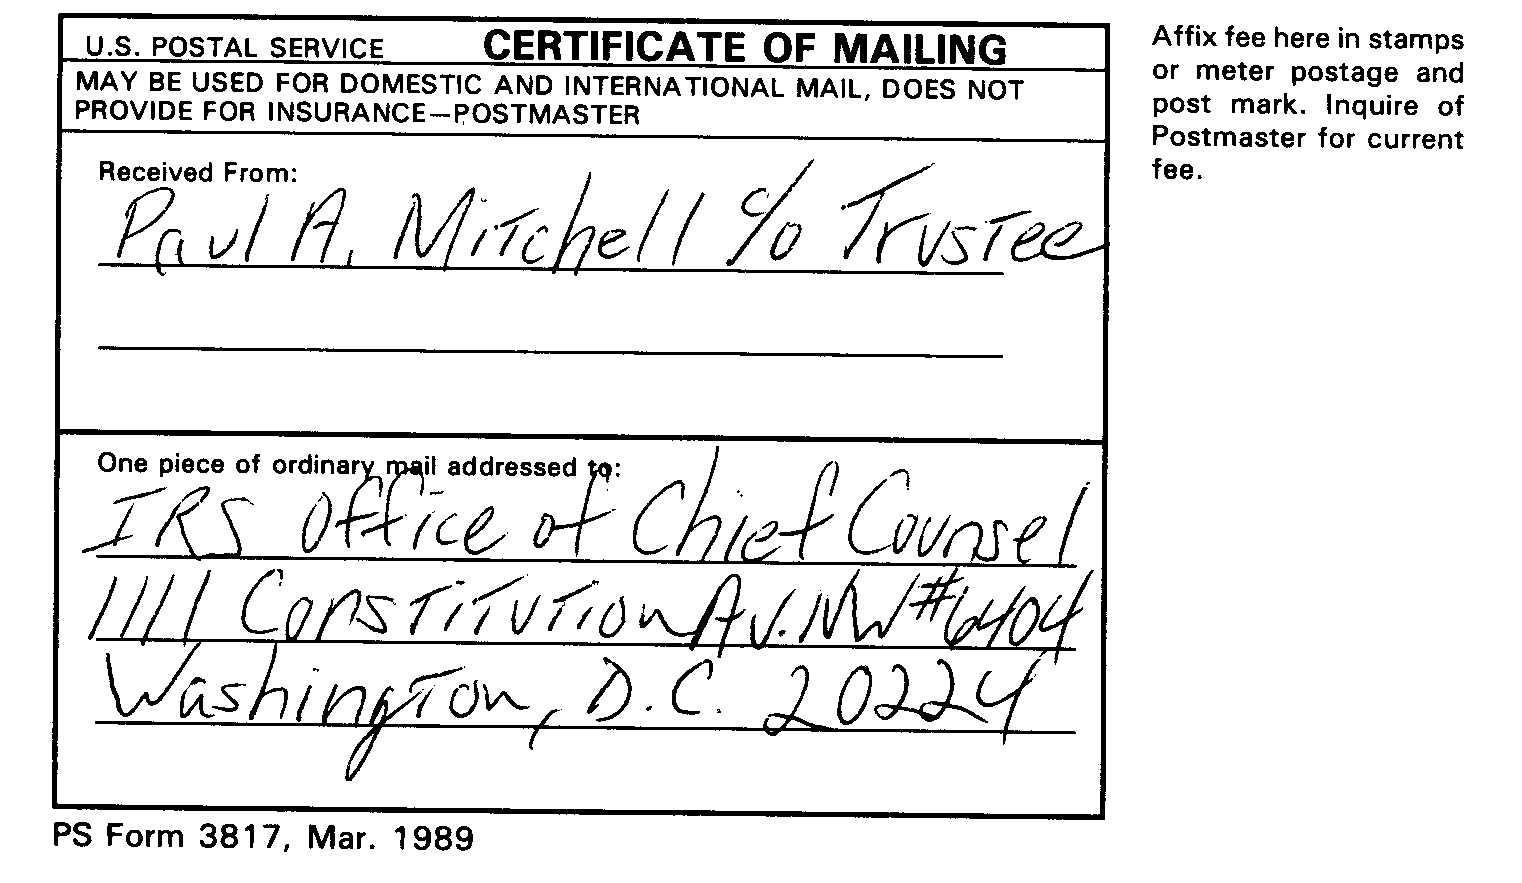 U.S. POSTAL SERVICE CERTIFICATE OF MAILING
MAY BE USED FOR DOMESTIC AND INTERNATIONAL MAIL, DOES NOT
PROVIDE FOR INSURANCE—POSTMASTER
Received From:
Paul A. Mitchell % Trustee
One piece of ordinary mail addressed to:
IRS Office of Chief Counsel
1111 Constitution Av. NW #6404
Washington, D.C. 20224
PS Form 3817, Mar. 1989
Affix fee here in stamps
or meter postage and
post mark. Inquire of
Postmaster for current
fee.